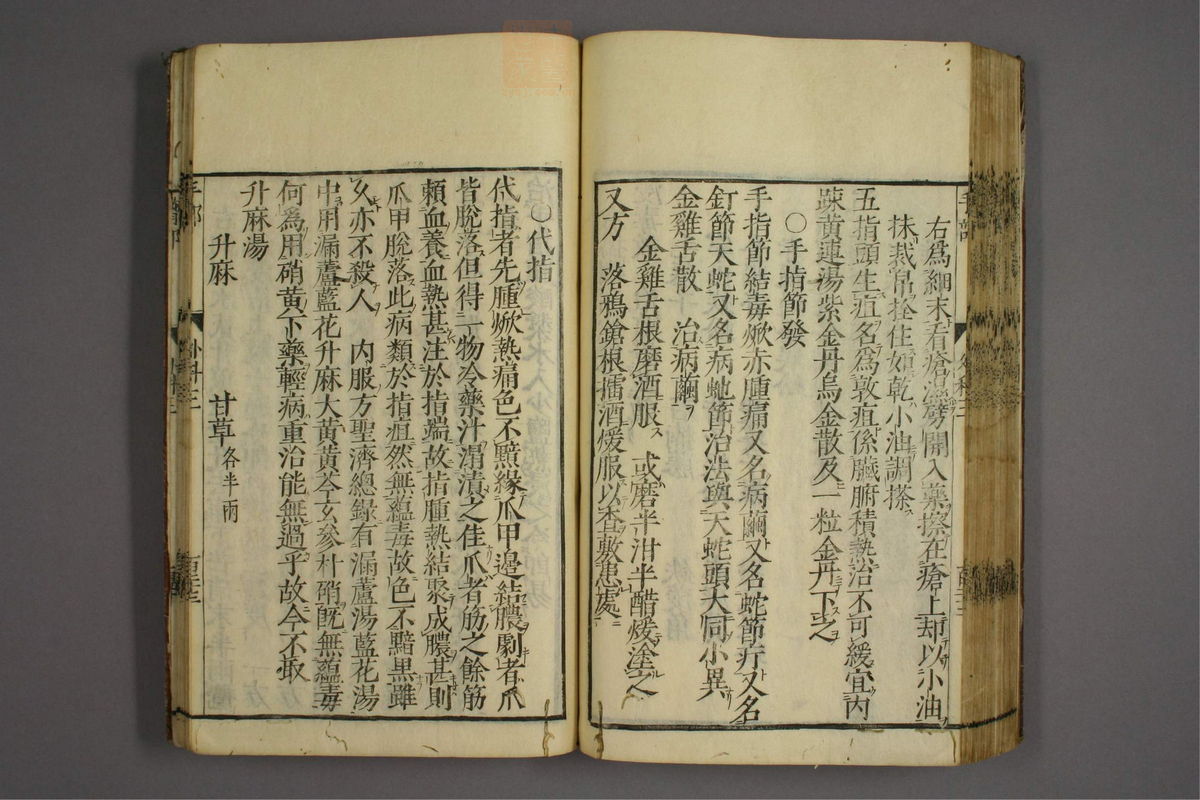 右爲細末看瘡溢劈開入藥搽在瘡上却以小油
抹裁帛拴住如乾小油調搽
五指頭生疽名爲敦疽係臟腑積熱治不可緩宜内
踈黄連湯紫金丹烏金散及一粒金丹下之
〇手指節發
手指節結毒焮赤腫痛又名病繭又名蛇節疔又名
釘節天蛇又名病虵節治法與天蛇頭大同小異
金雞舌散 治病繭
金雞舌根磨酒服 或磨半泔半醋煖塗之
又方 落鴉鎗根擂酒煖服以查敷患處
〇代指
代指者先腫焮熱痛色不黯緣爪甲邊結膿劇者爪
皆脫落但得一物冷藥汁溻漬之佳爪者筋之餘筋
頼血養血熱甚注於指端故指腫熱結聚成膿甚則
爪甲脫落此病類於指疽然無蘊毒故色不黯黒雖
久亦不殺人 内服方聖濟總錄有漏蘆湯藍花湯
中用漏蘆藍花升麻大黄黄芩玄參朴硝旣無蘊毒
何為用硝黄下藥輕病重治能無過乎故今不取
升麻湯
升麻 甘草各半兩